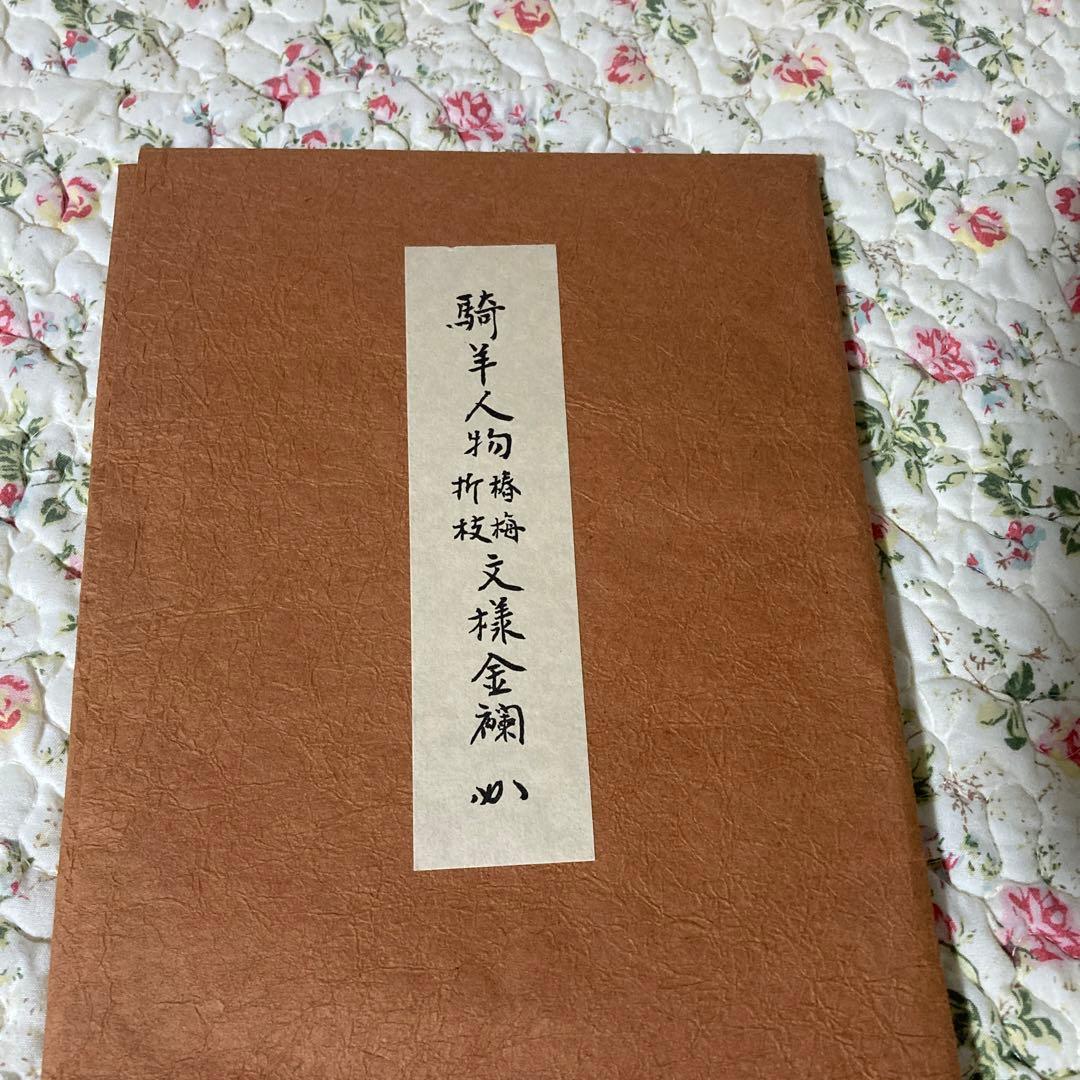 騎羊人物椿梅折枝文様金襴